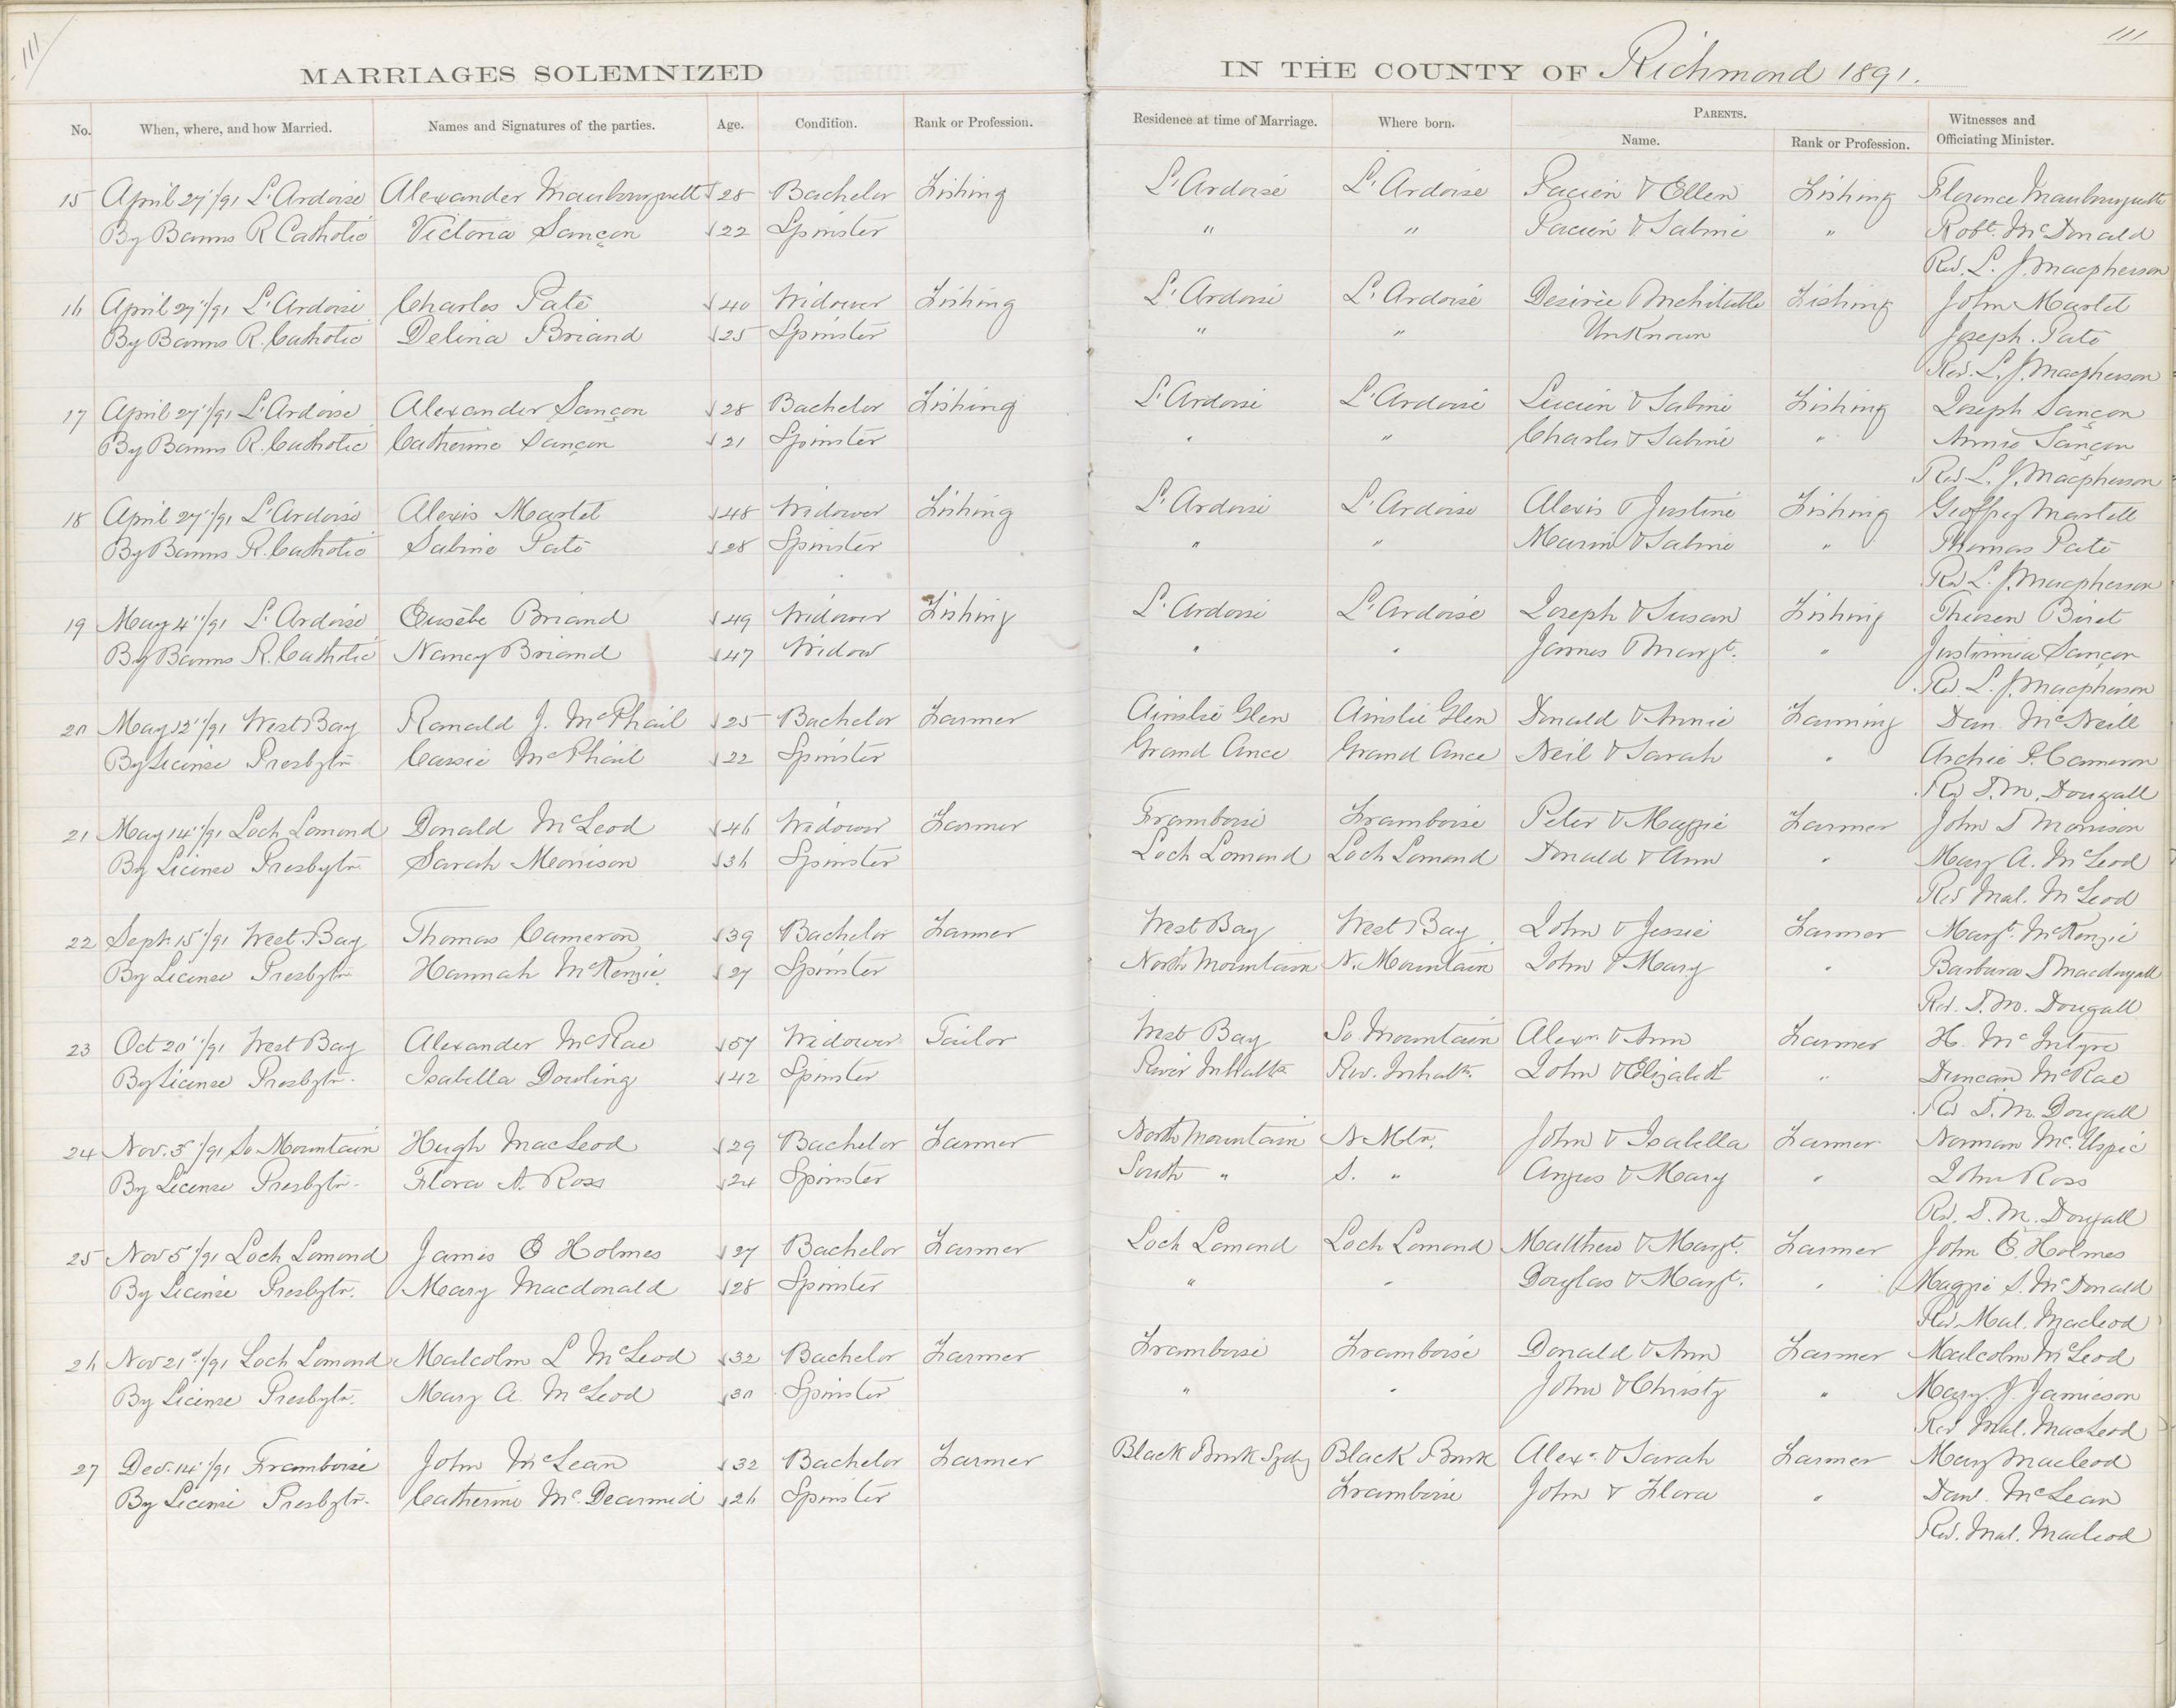 111
111
MARRIAGES SOLEMNIZED IN THE COUNTY OF Richmond 1891.
No. When, where, and how Married. Names and Signatures of the parties. Age. Condition. Rank or Profession. Residence at time of Marriage. Where born. PARENTS. Witnesses and
Name. Rank or Profession. Officiating Minister.
15 April 27"/91 L'Ardoise Alexander 28 Bachelor Fishing L'Ardoise L'Ardoise & Ellen Fishing Florence
By Banns R Catholic Victoria Sançon 22 Spinster " " & Sabine " Robt. McDonald
Rev. L. J. Macpherson
16 April 27"/91 L'Ardoise Charles Paté 40 Widower Fishing L'Ardoise L'Ardoise Desirée & Fishing John Martet
By Banns R. Catholic Delina Briand 25 Spinster " " UnKnown Joseph Paté
Rev. L. J. Macpherson
17 April 27"/91 L'Ardoise Alexander Sançon 28 Bachelor Fishing L'Ardoise L'Ardoise Lucien & Sabine Fishing Joseph Sançon
By Banns R. Catholic Catherine Sançon 21 Spinster " " Charles & Sabine " Annie Sançon
Rev. L. J. Macpherson
18 April 27"/91 L'Ardoise Alexis Martet 48 Widower Fishing L'Ardoise L'Ardoise Alexis & Justine Fishing Geoffrey Martell
By Banns R. Catholic Sabine Paté 28 Spinster " " Marin & Sabine " Thomas Paté
Rev L. J. Macpherson
19 May 4"/91 L'Ardoise Eusèbe Briand 49 Widower Fishing L'Ardoise L'Ardoise Joseph & Susan Fishing
By Banns R. Catholic Nancy Briand 47 Widow " " James & Margt. " Sançon
Rev. L. J. Macpherson
20 May 12"/91 West Bay Ranald J. McPhail 25 Bachelor Farmer Ainslie Glen Ainslie Glen Donald & Annie Farming Dan McNeill
By License Presbytn Cassie McPhail 22 Spinster Grand Ance Grand Ance Neil & Sarah " Archie P. Cameron
Rev D. M. Dougall
21 May 14"/91 Loch Lomond Donald McLeod 46 Widower Farmer Framboise Framboise Peter & Maggie Farmer John D Morrison
By License Presbytn Sarah Morrison 36 Spinster Loch Lomond Loch Lomond Donald & Ann " Mary A. McLeod
Rev Mal. McLeod
22 Sept 15"/91 West Bay Thomas Cameron 39 Bachelor Farmer West Bay West Bay John & Jessie Farmer Margt. McKenzie
By License Presbytn Hannah McKenzie 27 Spinster North Mountain N. Mountain John & Mary " Barbara D Macdugall
Rev. D. M. Dougall
23 Oct 20"/91 West Bay Alexander McRae 57 Widower Tailor West Bay So Mountain Alexr. & Ann Farmer H. McIntyre
By License Presbytn. Isabella Dowling 42 Spinster River Inhabts Riv. Inhabts. John & Elizabeth " Duncan McRae
Rev D. M. Dougall
24 Nov. 3"/91 So Mountain Hugh MacLeod 29 Bachelor Farmer North Mountain N Mtn. John & Isabella Farmer Norman
By License Presbytn. Flora A. Ross 24 Spinster South " S. " Angus & Mary " John Ross
Rev. D. M. Dougall
25 Nov 5"/91 Loch Lomond James E Holmes 27 Bachelor Farmer Loch Lomond Loch Lomond Matthew & Margt. Farmer John E. Holmes
By License Presbytn. Mary Macdonald 28 Spinster " " Douglas & Margt. " Maggie S. McDonald
Rev. Mal. Macleod
26 Nov 21st/91 Loch Lomond Malcolm L McLeod 32 Bachelor Farmer Framboise Framboise Donald & Ann Farmer Malcolm McLeod
By License Presbytn. Mary A. McLeod 30 Spinster " " John & Christy " Mary J. Jamieson
Rev Mal. MacLeod
27 Dec. 14"/91 Framboise John McLean 32 Bachelor Farmer Black Brook Sydny Black Brook Alexr. & Sarah Farmer Mary Macleod
By License Presbytn. Catherine McDearmid 26 Spinster Framboise John & Flora " Danl. McLean
Rev. Mal. Macleod